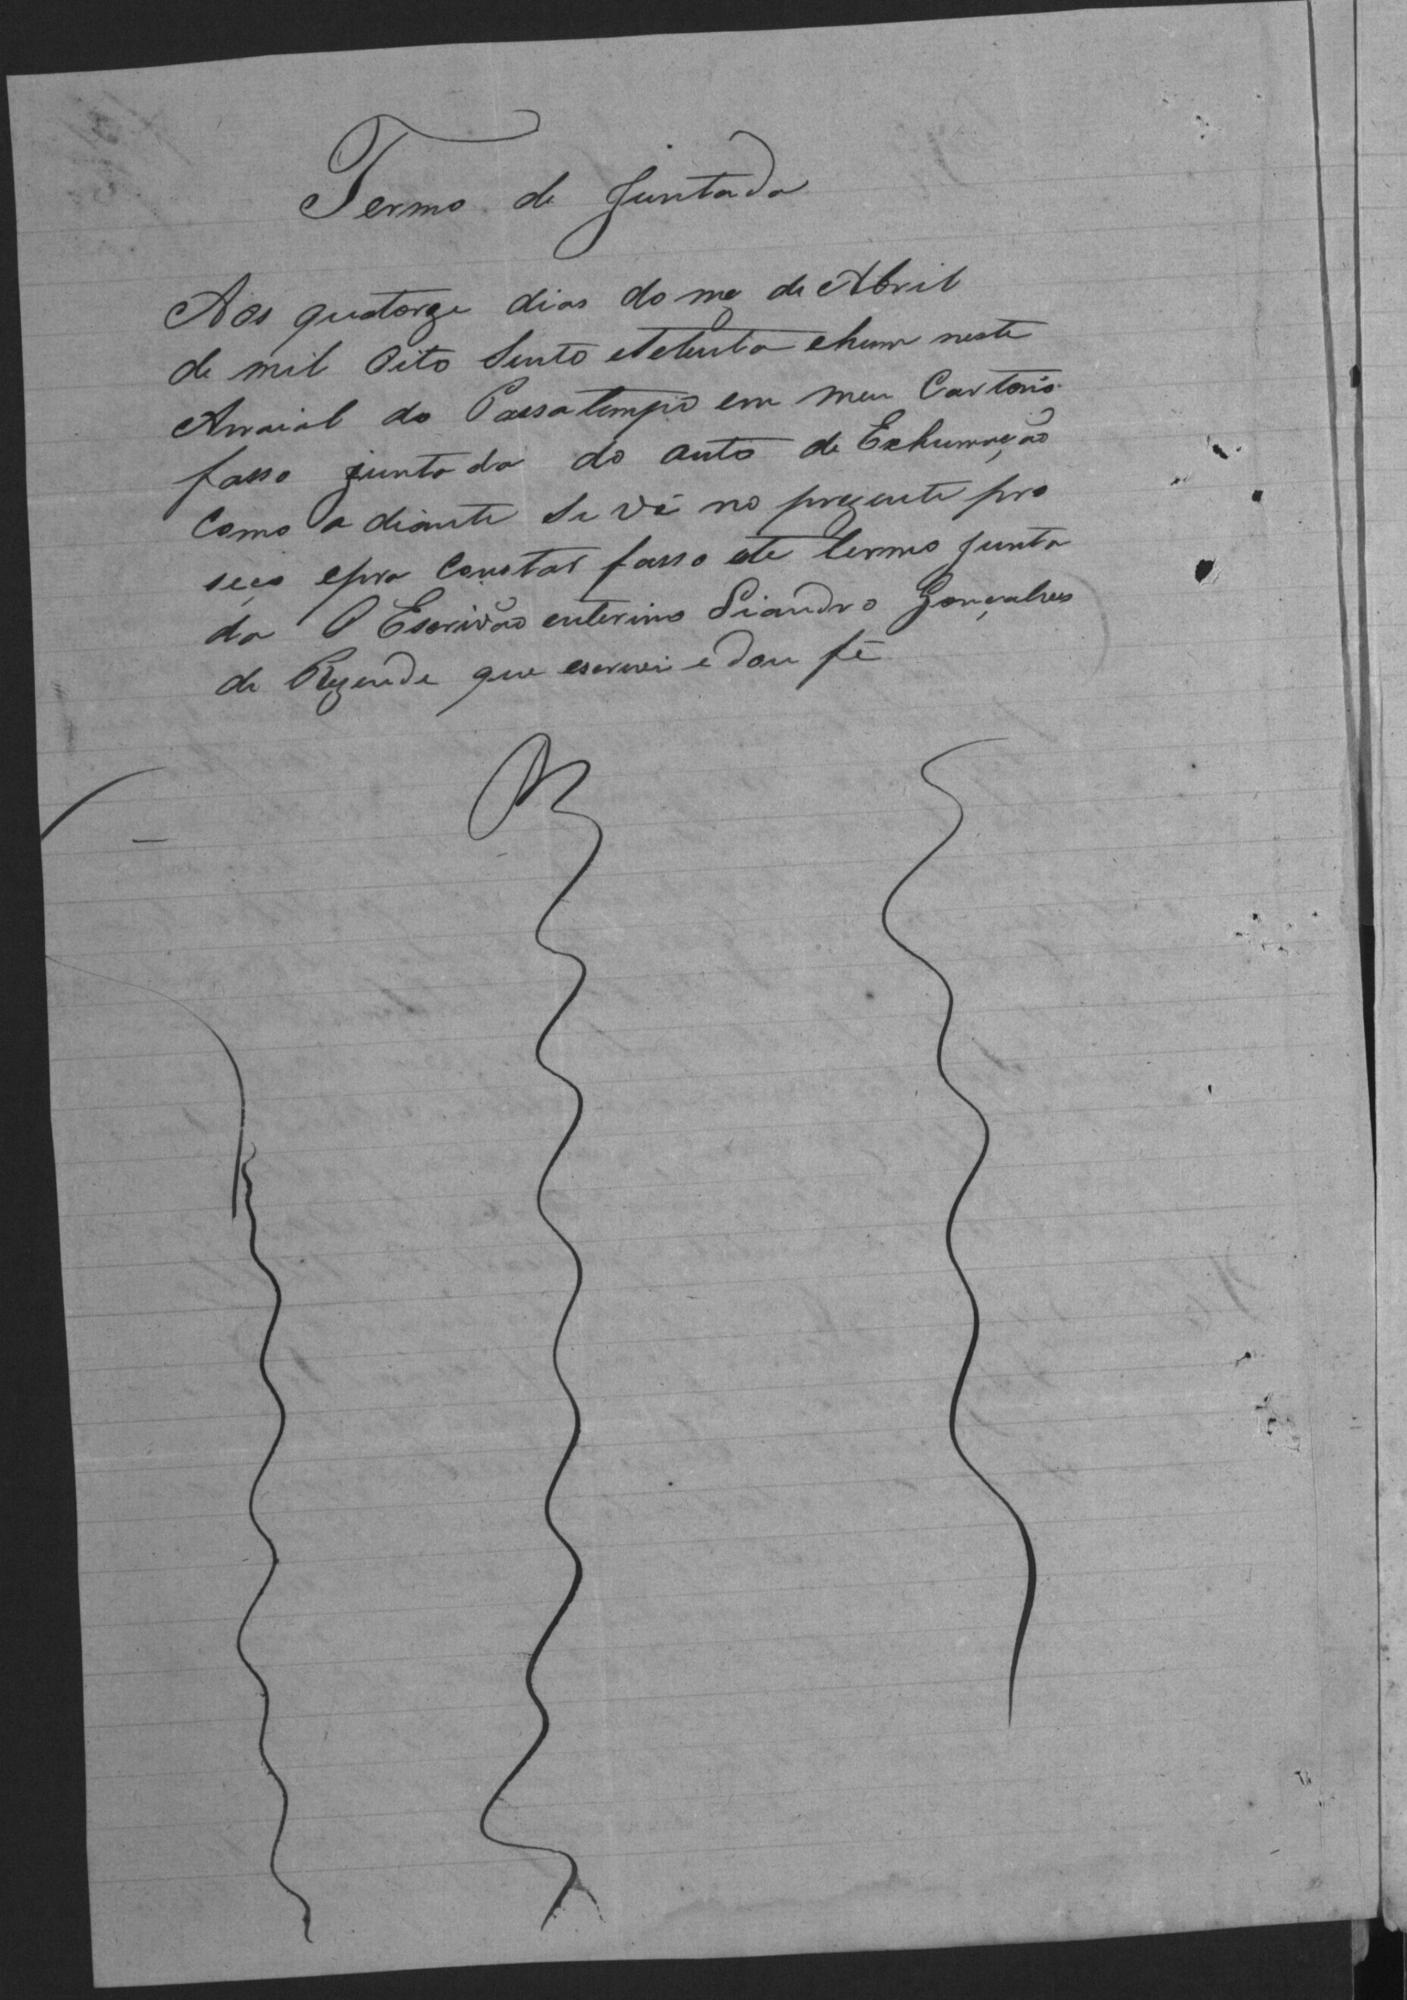 Termo de Juntada
Aos quatorze dias do mez de Abril
de mil oito sento e setenta e hum neste
Arraial do Passatempo em meu Cartorio
fasso juntada do auto de Exhumação
como a diante se vê no prezente pro
seço e pra constar fasso este termo junta
da O Escrivão enterino Liandro Gonçalves
de Rezende que escrevi e dou fé